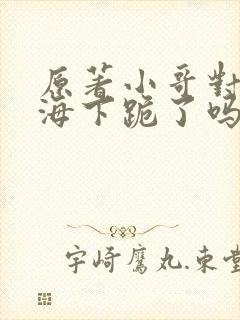 原著小哥對
海下跪了吗
宇崎鷹丸.束堂